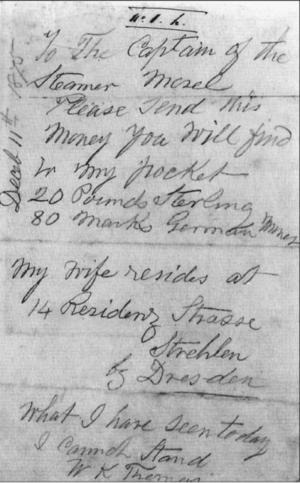 To The Captain of the
Steamer Mosel
Please Send this
Money You Will find
in my pocket
20 Pounds Sterling
80 Marks German Money
My Wife resides at
14 Residenz Strasse
Strehlen
by Dresden
What I have seen today
I cannot stand
W K Thomas
Decb 11th 1875